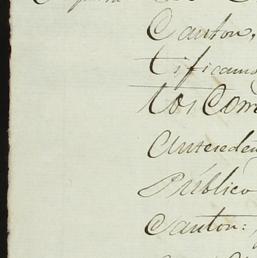 Canton,
tificam
los Com
Anteceden
Público
Canton: